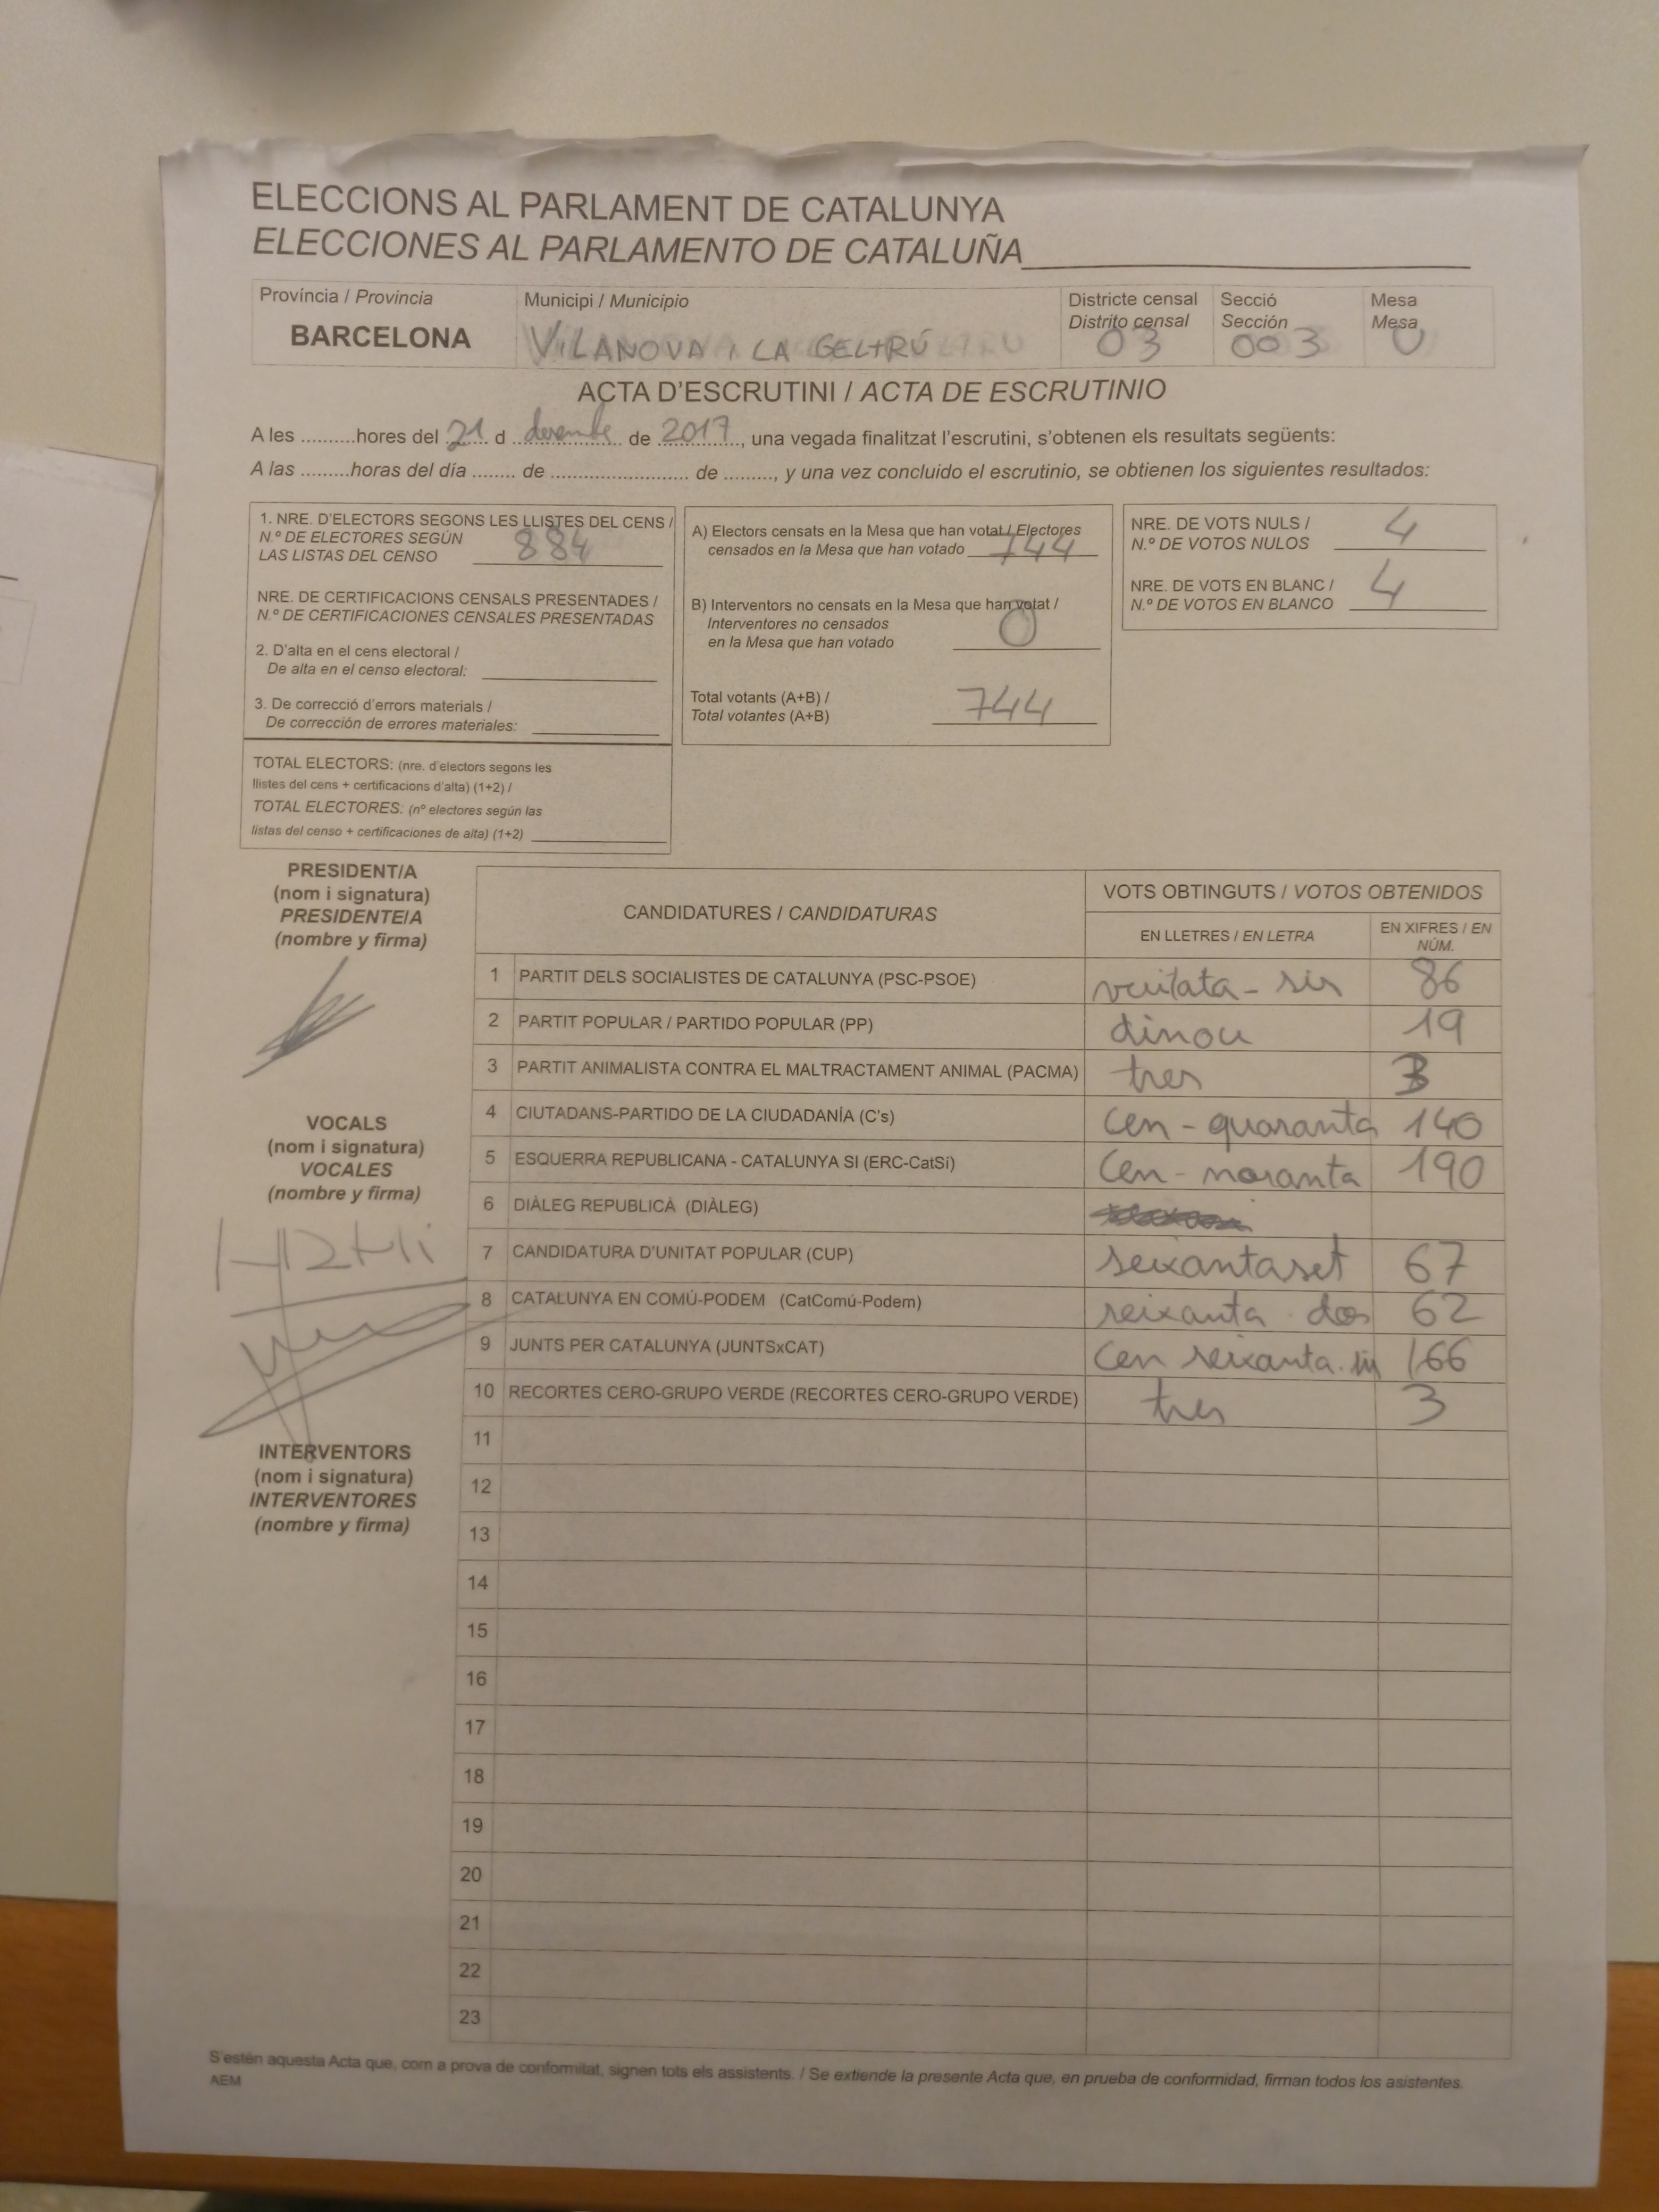 ELECCIONS AL PARLAMENT DE CATALUNYA
ELECCIONES AL PARLAMENTO DE CATALUÑA
Província / Provincia
BARCELONA
Municipi / Municipio
VILANOVA I LA GELTRÚ
Districte censal
Distrito censal
03
Secció
Sección
003
Mesa
Mesa
U
ACTA D'ESCRUTINI / ACTA DE ESCRUTINIO
A les ..........hores del 21 d desembre de 2017, una vegada finalitzat l'escrutini, s'obtenen els resultats següents:
A las .........horas del día ........ de ........................ de ........., y una vez concluido el escrutinio, se obtienen los siguientes resultados:
1. NRE. D'ELECTORS SEGONS LES LLISTES DEL CENS /
N.º DE ELECTORES SEGÚN
LAS LISTAS DEL CENSO 884
NRE. DE CERTIFICACIONS CENSALS PRESENTADES /
N.º DE CERTIFICACIONES CENSALES PRESENTADAS
2. D'alta en el cens electoral /
De alta en el censo electoral:
3. De correcció d'errors materials /
De corrección de errores materiales:
TOTAL ELECTORS: (nre. d'electors segons les
llistes del cens + certificacions d'alta) (1+2) /
TOTAL ELECTORES: (nº electores según las
listas del censo + certificaciones de alta) (1+2)
A) Electors censats en la Mesa que han votat / Electores
censados en la Mesa que han votado 744
B) Interventors no censats en la Mesa que han votat /
Interventores no censados
en la Mesa que han votado 0
Total votants (A+B) /
Total votantes (A+B) 744
NRE. DE VOTS NULS /
N.º DE VOTOS NULOS 4
NRE. DE VOTS EN BLANC /
N.º DE VOTOS EN BLANCO 4
PRESIDENT/A
(nom i signatura)
PRESIDENTE/A
(nombre y firma)
VOCALS
(nom i signatura)
VOCALES
(nombre y firma)
INTERVENTORS
(nom i signatura)
INTERVENTORES
(nombre y firma)
CANDIDATURES / CANDIDATURAS
VOTS OBTINGUTS / VOTOS OBTENIDOS
EN LLETRES / EN LETRA
EN XIFRES / EN
NÚM.
1 PARTIT DELS SOCIALISTES DE CATALUNYA (PSC-PSOE) vuitata-sis 86
2 PARTIT POPULAR / PARTIDO POPULAR (PP) dinou 19
3 PARTIT ANIMALISTA CONTRA EL MALTRACTAMENT ANIMAL (PACMA) tres 3
4 CIUTADANS-PARTIDO DE LA CIUDADANÍA (C's) cen-quaranta 140
5 ESQUERRA REPUBLICANA - CATALUNYA SI (ERC-CatSí) Cen-noranta 190
6 DIÀLEG REPUBLICÀ (DIÀLEG)
7 CANDIDATURA D'UNITAT POPULAR (CUP) seixantaset 67
8 CATALUNYA EN COMÚ-PODEM (CatComú-Podem) seixanta dos 62
9 JUNTS PER CATALUNYA (JUNTSxCAT) Cen seixanta 166
10 RECORTES CERO-GRUPO VERDE (RECORTES CERO-GRUPO VERDE) tres 3
11
12
13
14
15
16
17
18
19
20
21
22
23
S'estén aquesta Acta que, com a prova de conformitat, signen tots els assistents. / Se extiende la presente Acta que, en prueba de conformidad, firman todos los asistentes.
AEM